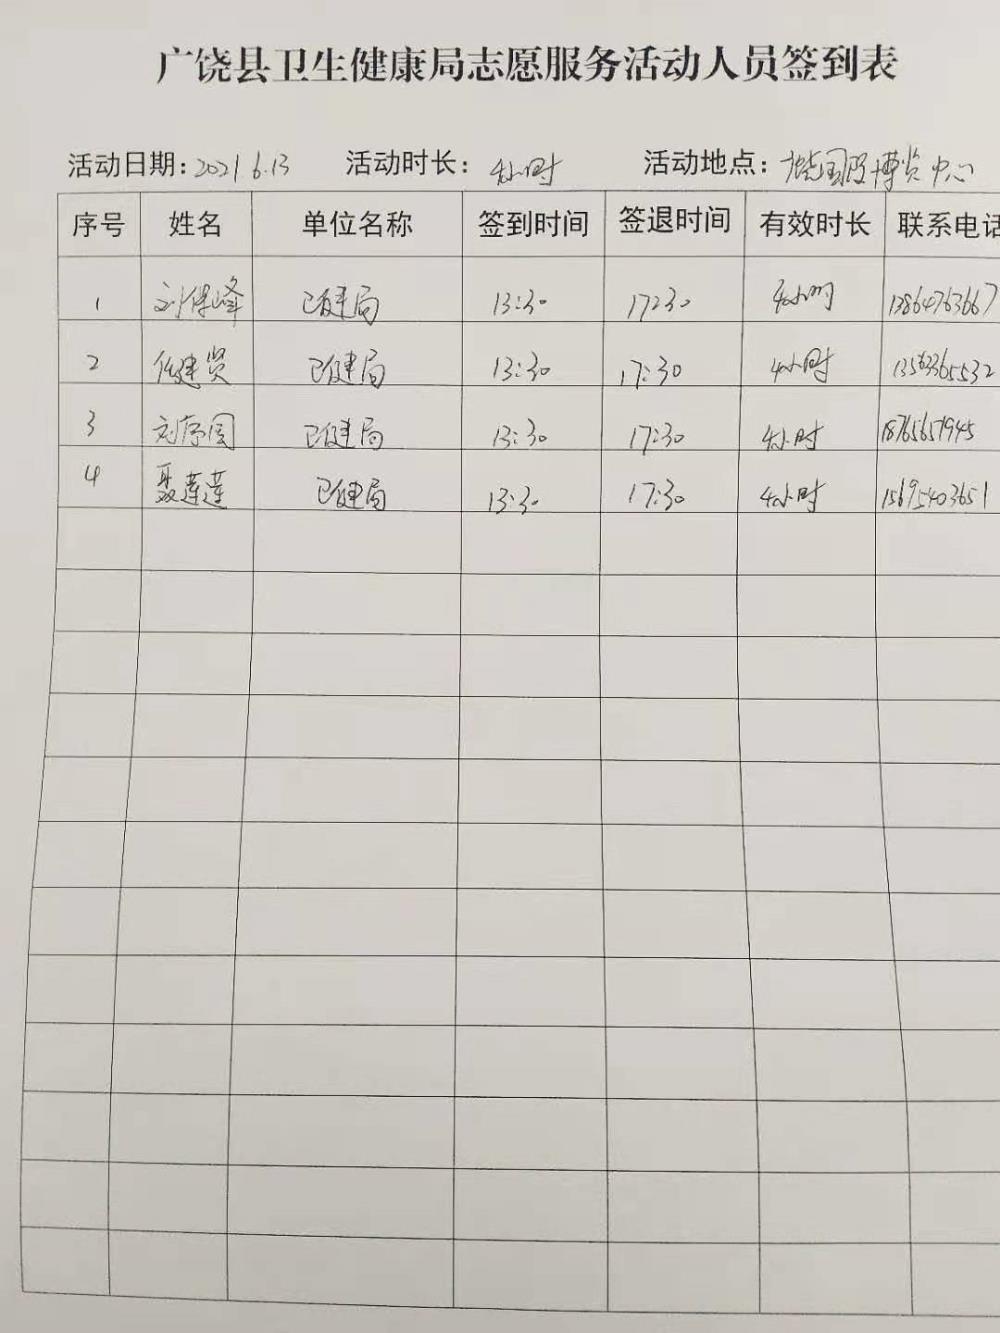 广饶县卫生健康局志愿服务活动人员签到表
活动日期：2021.6.13 活动时长：4小时 活动地点：广饶国际博览中心
序号 姓名 单位名称 签到时间 签退时间 有效时长 联系电话
1 刘保峰 卫健局 13:30 17:30 4小时 13864763667
2 任建贤 卫健局 13:30 17:30 4小时 13563365532
3 卫健局 13:30 17:30 4小时 18765657945
4 聂莲莲 卫健局 13:30 17:30 4小时 15695403651